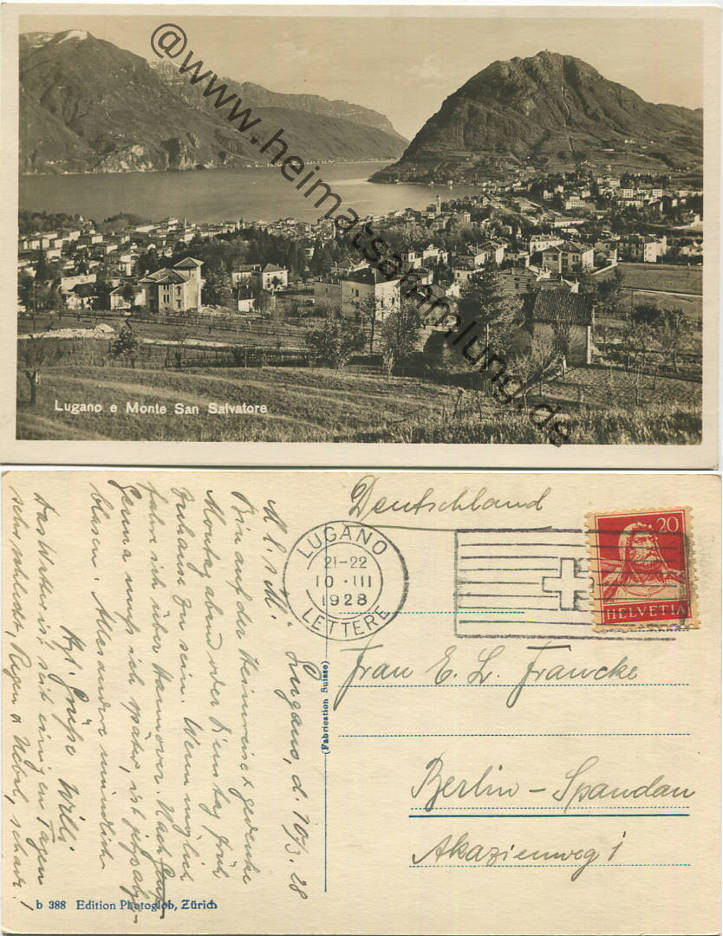 @www.heimatsammlung.de
Lugano e Monte San Salvatore
Deutschland
LUGANO
21-22
10·III
1928
LETTERE
20
HELVETIA
Frau E. L. Francke
Berlin-Spandau
Akazienweg 1
(Fabrication Suisse)
Lugano, d. 10/3. 28
M. l.
Bin auf der Heimreise & gedenke
Montag abend oder Dienstag früh
zuhause zu sein. Wenn möglich
fahre ich über Hannover. Nach
Genua muss ich später, ist jetzt
blasen. Alles andere mündlich.
Hzl. Grüße Willi
Das Wetter ist seit einigen Tagen
sehr schlecht, Regen & Nebel, schade!
b 388 Edition Photoglob, Zürich